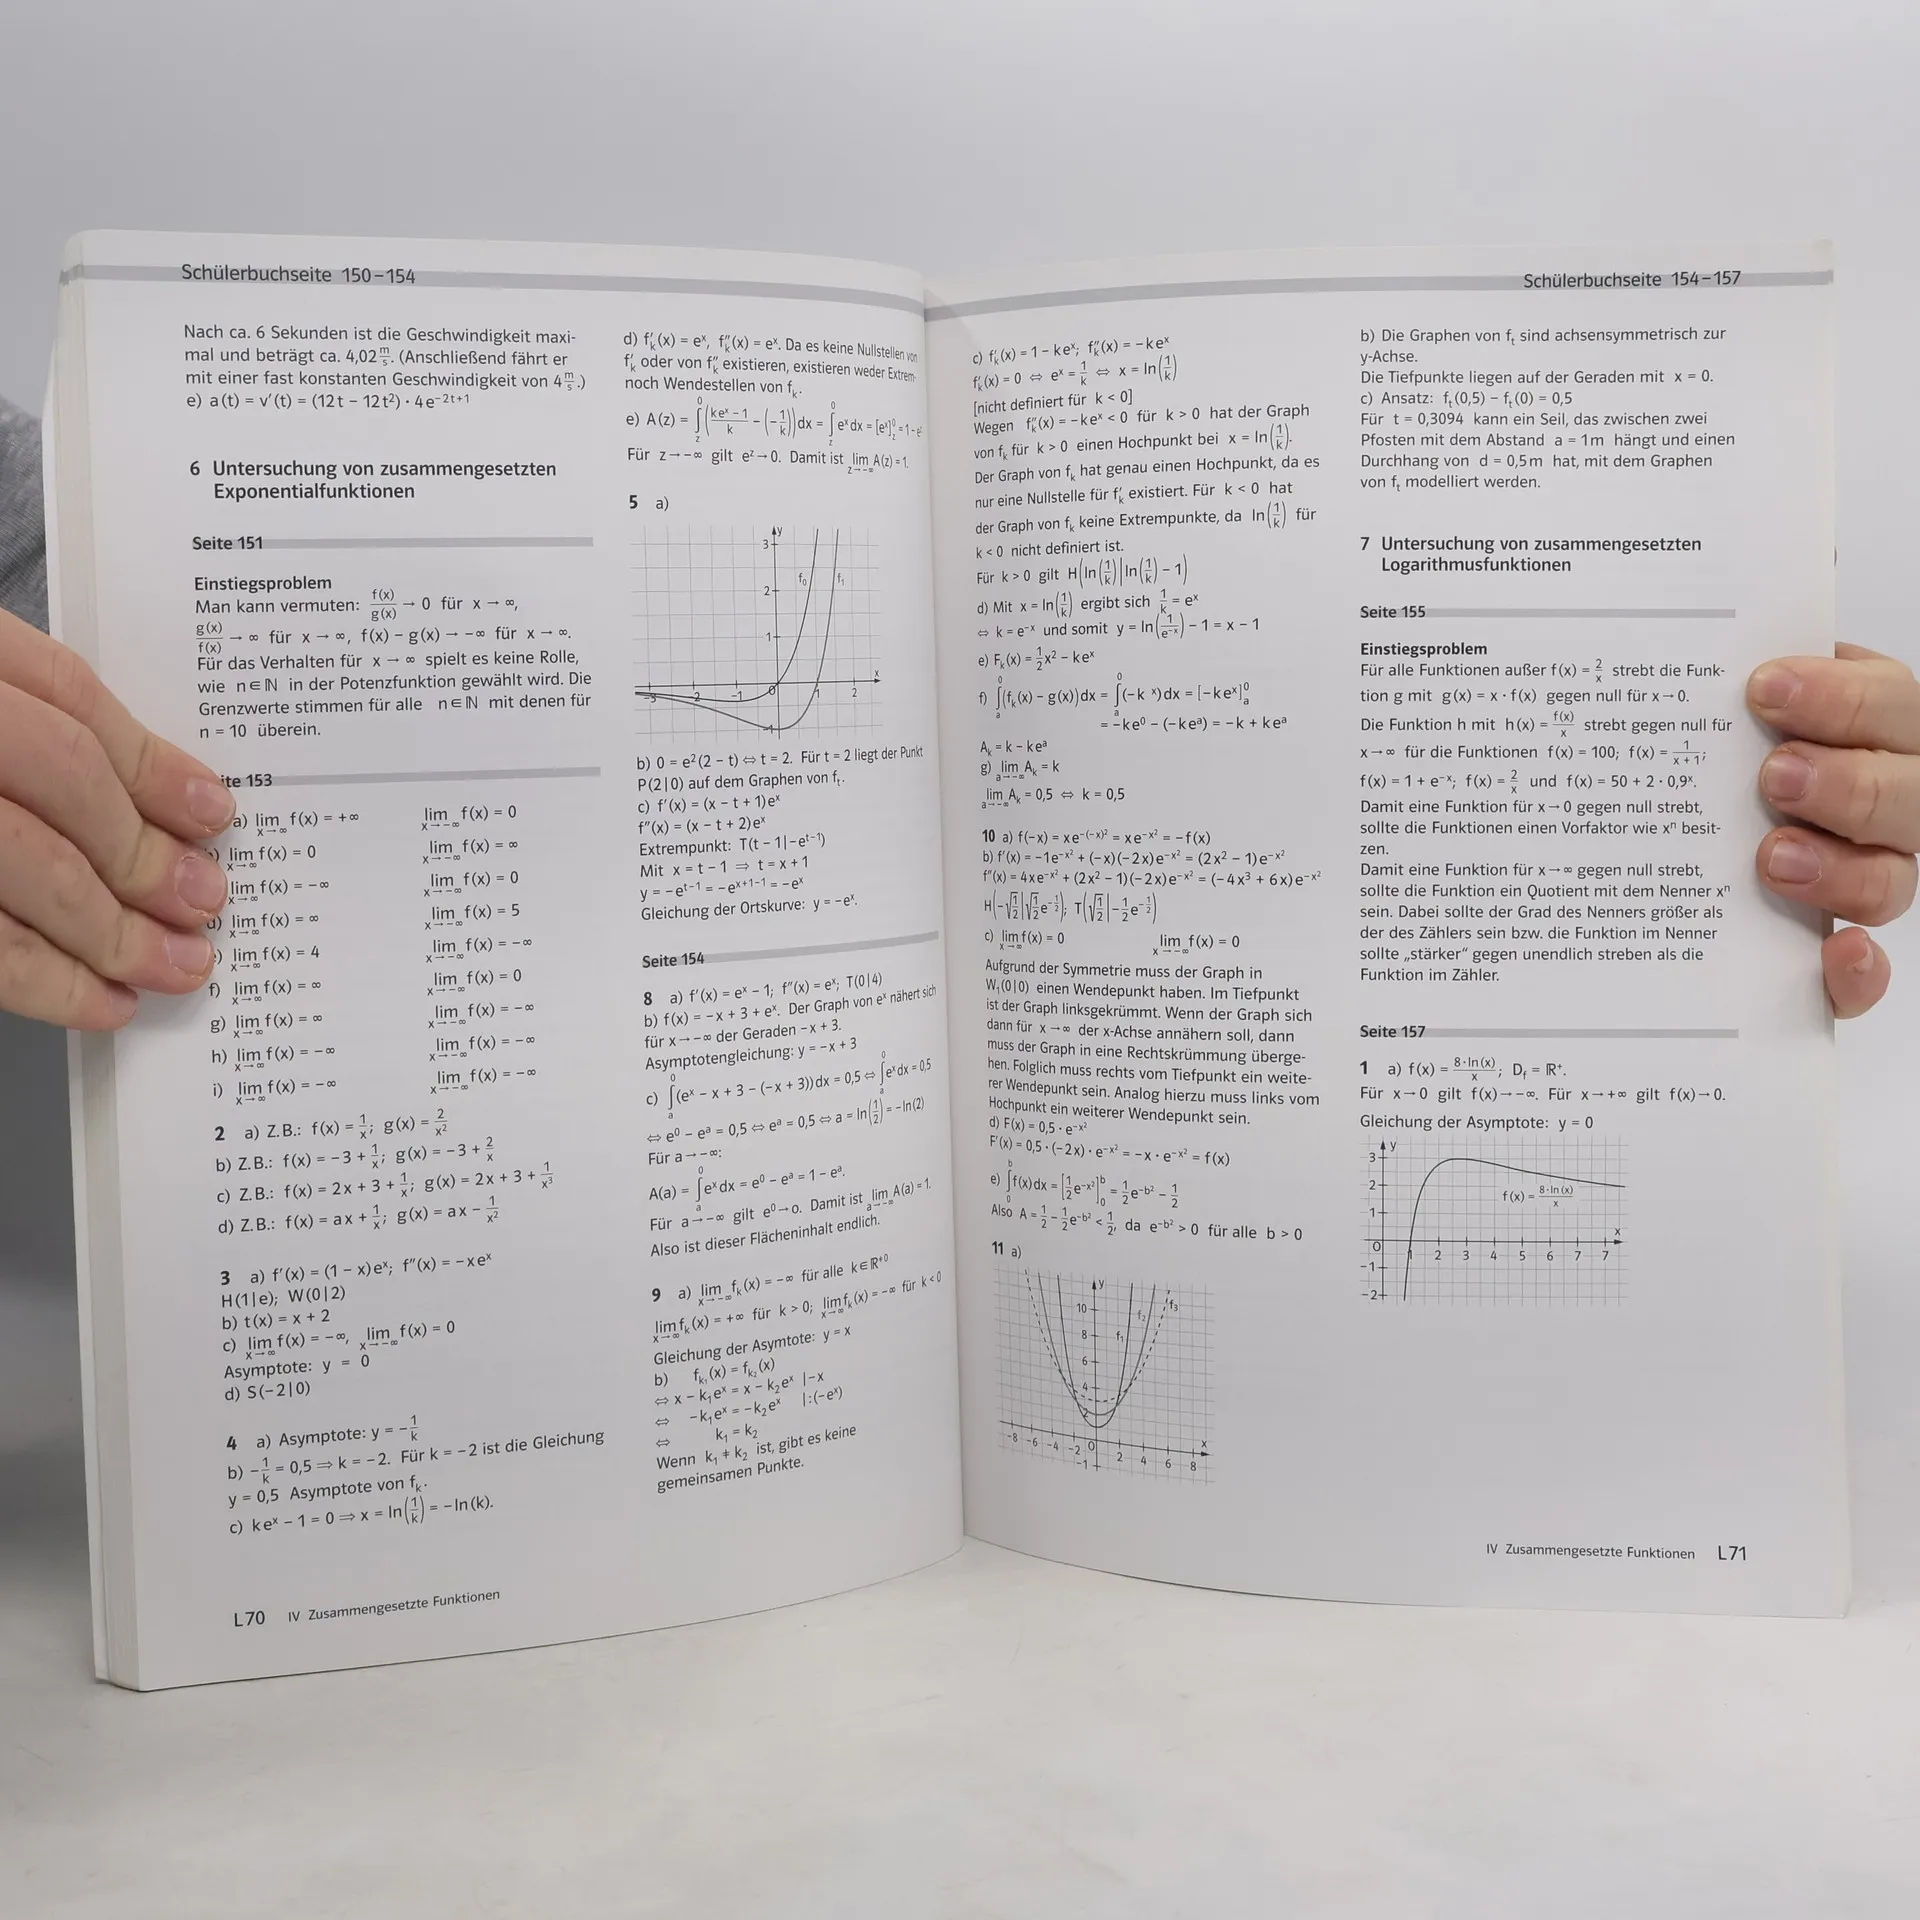 Schülerbuchseite 150–154
Nach ca. 6 Sekunden ist die Geschwindigkeit maxi-
mal und beträgt ca. 4,02 m/s. (Anschließend fährt er
mit einer fast konstanten Geschwindigkeit von 4 m/s.)
e) a(t) = v′(t) = (12t − 12t²) · 4e^(−2t+1)
6 Untersuchung von zusammengesetzten
Exponentialfunktionen
Seite 151
Einstiegsproblem
Man kann vermuten: f(x)/g(x) → 0 für x → ∞,
g(x)/f(x) → ∞ für x → ∞, f(x) − g(x) → −∞ für x → ∞.
Für das Verhalten für x → ∞ spielt es keine Rolle,
wie n∈ℕ in der Potenzfunktion gewählt wird. Die
Grenzwerte stimmen für alle n∈ℕ mit denen für
n = 10 überein.
ite 153
a) lim x→∞ f(x) = +∞ lim x→−∞ f(x) = 0
) lim x→∞ f(x) = 0 lim x→−∞ f(x) = ∞
lim x→∞ f(x) = −∞ lim x→−∞ f(x) = 0
d) lim x→∞ f(x) = ∞ lim x→−∞ f(x) = 5
) lim x→∞ f(x) = 4 lim x→−∞ f(x) = −∞
f) lim x→∞ f(x) = ∞ lim x→−∞ f(x) = 0
g) lim x→∞ f(x) = ∞ lim x→−∞ f(x) = −∞
h) lim x→∞ f(x) = −∞ lim x→−∞ f(x) = −∞
i) lim x→∞ f(x) = −∞ lim x→−∞ f(x) = −∞
2 a) Z.B.: f(x) = 1/x; g(x) = 2/x²
b) Z.B.: f(x) = −3 + 1/x; g(x) = −3 + 2/x
c) Z.B.: f(x) = 2x + 3 + 1/x; g(x) = 2x + 3 + 1/x³
d) Z.B.: f(x) = ax + 1/x; g(x) = ax − 1/x²
3 a) f′(x) = (1 − x)eˣ; f″(x) = −xeˣ
H(1|e); W(0|2)
b) t(x) = x + 2
c) lim x→∞ f(x) = −∞, lim x→−∞ f(x) = 0
Asymptote: y = 0
d) S(−2|0)
4 a) Asymptote: y = −1/k
b) −1/k = 0,5 ⇒ k = −2. Für k = −2 ist die Gleichung
y = 0,5 Asymptote von fₖ.
c) keˣ − 1 = 0 ⇒ x = ln(1/k) = −ln(k).
L70 IV Zusammengesetzte Funktionen
d) fₖ′(x) = eˣ, fₖ″(x) = eˣ. Da es keine Nullstellen von
fₖ′ oder von fₖ″ existieren, existieren weder Extrem-
noch Wendestellen von fₖ.
e) A(z) = ∫_z^0 ((keˣ − 1)/k − (−1/k)) dx = ∫_z^0 eˣ dx = [eˣ]_z^0 = 1 − e
Für z → −∞ gilt e^z → 0. Damit ist lim z→−∞ A(z) = 1.
5 a)
y
3
f₀ f₁
2
1
x
−3 −2 −1 0 1 2
−1
b) 0 = e²(2 − t) ⇔ t = 2. Für t = 2 liegt der Punkt
P(2|0) auf dem Graphen von fₜ.
c) f′(x) = (x − t + 1)eˣ
f″(x) = (x − t + 2)eˣ
Extrempunkt: T(t − 1|−e^(t−1))
Mit x = t − 1 ⇒ t = x + 1
y = −e^(t−1) = −e^(x+1−1) = −eˣ
Gleichung der Ortskurve: y = −eˣ.
Seite 154
8 a) f′(x) = eˣ − 1; f″(x) = eˣ; T(0|4)
b) f(x) = −x + 3 + eˣ. Der Graph von eˣ nähert sich
für x → −∞ der Geraden −x + 3.
Asymptotengleichung: y = −x + 3
c) ∫_a^0 (eˣ − x + 3 − (−x + 3)) dx = 0,5 ⇔ ∫_a^0 eˣ dx = 0,5
⇔ e⁰ − e^a = 0,5 ⇔ e^a = 0,5 ⇔ a = ln(1/2) = −ln(2)
Für a → −∞:
A(a) = ∫_a^0 eˣ dx = e⁰ − e^a = 1 − e^a.
Für a → −∞ gilt e⁰ → 0. Damit ist lim a→−∞ A(a) = 1.
Also ist dieser Flächeninhalt endlich.
9 a) lim x→−∞ fₖ(x) = −∞ für alle k∈ℝ^(≠0)
lim x→∞ fₖ(x) = +∞ für k > 0; lim x→∞ fₖ(x) = −∞ für k < 0
Gleichung der Asymtote: y = x
b) f_k₁(x) = f_k₂(x)
⇔ x − k₁eˣ = x − k₂eˣ |−x
⇔ −k₁eˣ = −k₂eˣ |:(−eˣ)
⇔ k₁ = k₂
Wenn k₁ ≠ k₂ ist, gibt es keine
gemeinsamen Punkte.
Schülerbuchseite 154–157
c) fₖ′(x) = 1 − keˣ; fₖ″(x) = −keˣ
fₖ′(x) = 0 ⇔ eˣ = 1/k ⇔ x = ln(1/k)
[nicht definiert für k < 0]
Wegen fₖ″(x) = −keˣ < 0 für k > 0 hat der Graph
von fₖ für k > 0 einen Hochpunkt bei x = ln(1/k).
Der Graph von fₖ hat genau einen Hochpunkt, da es
nur eine Nullstelle für fₖ′ existiert. Für k < 0 hat
der Graph von fₖ keine Extrempunkte, da ln(1/k) für
k < 0 nicht definiert ist.
Für k > 0 gilt H(ln(1/k)|ln(1/k) − 1)
d) Mit x = ln(1/k) ergibt sich 1/k = eˣ
⇔ k = e^(−x) und somit y = ln(1/e^(−x)) − 1 = x − 1
e) Fₖ(x) = 1/2 x² − keˣ
f) ∫_a^0 (fₖ(x) − g(x)) dx = ∫_a^0 (−k ˣ) dx = [−keˣ]_a^0
= −ke⁰ − (−ke^a) = −k + ke^a
Aₖ = k − ke^a
g) lim a→−∞ Aₖ = k
lim a→−∞ Aₖ = 0,5 ⇔ k = 0,5
10 a) f(−x) = xe^(−(−x)²) = xe^(−x²) = −f(x)
b) f′(x) = −1e^(−x²) + (−x)(−2x)e^(−x²) = (2x² − 1)e^(−x²)
f″(x) = 4xe^(−x²) + (2x² − 1)(−2x)e^(−x²) = (−4x³ + 6x)e^(−x²)
H(−√(1/2)|√(1/2)e^(−1/2)); T(√(1/2)|−1/2 e^(−1/2))
c) lim x→∞ f(x) = 0 lim x→−∞ f(x) = 0
Aufgrund der Symmetrie muss der Graph in
W₁(0|0) einen Wendepunkt haben. Im Tiefpunkt
ist der Graph linksgekrümmt. Wenn der Graph sich
dann für x → ∞ der x-Achse annähern soll, dann
muss der Graph in eine Rechtskrümmung überge-
hen. Folglich muss rechts vom Tiefpunkt ein weite-
rer Wendepunkt sein. Analog hierzu muss links vom
Hochpunkt ein weiterer Wendepunkt sein.
d) F(x) = 0,5 · e^(−x²)
F′(x) = 0,5 · (−2x) · e^(−x²) = −x · e^(−x²) = f(x)
e) ∫_0^b f(x) dx = [1/2 e^(−x²)]_0^b = 1/2 e^(−b²) − 1/2
Also A = 1/2 − 1/2 e^(−b²) < 1/2, da e^(−b²) > 0 für alle b > 0
11 a)
y
10 f₂ f₃
8 f₁
6
4
2
x
−8 −6 −4 −2 0 2 4 6 8
−1
b) Die Graphen von fₜ sind achsensymmetrisch zur
y-Achse.
Die Tiefpunkte liegen auf der Geraden mit x = 0.
c) Ansatz: fₜ(0,5) − fₜ(0) = 0,5
Für t = 0,3094 kann ein Seil, das zwischen zwei
Pfosten mit dem Abstand a = 1m hängt und einen
Durchhang von d = 0,5m hat, mit dem Graphen
von fₜ modelliert werden.
7 Untersuchung von zusammengesetzten
Logarithmusfunktionen
Seite 155
Einstiegsproblem
Für alle Funktionen außer f(x) = 2/x strebt die Funk-
tion g mit g(x) = x · f(x) gegen null für x → 0.
Die Funktion h mit h(x) = f(x)/x strebt gegen null für
x → ∞ für die Funktionen f(x) = 100; f(x) = 1/(x + 1);
f(x) = 1 + e^(−x); f(x) = 2/x und f(x) = 50 + 2 · 0,9ˣ.
Damit eine Funktion für x → 0 gegen null strebt,
sollte die Funktionen einen Vorfaktor wie xⁿ besit-
zen.
Damit eine Funktion für x → ∞ gegen null strebt,
sollte die Funktion ein Quotient mit dem Nenner xⁿ
sein. Dabei sollte der Grad des Nenners größer als
der des Zählers sein bzw. die Funktion im Nenner
sollte „stärker“ gegen unendlich streben als die
Funktion im Zähler.
Seite 157
1 a) f(x) = 8·ln(x)/x; D_f = ℝ⁺.
Für x → 0 gilt f(x) → −∞. Für x → +∞ gilt f(x) → 0.
Gleichung der Asymptote: y = 0
y
3
2
f(x) = 8·ln(x)/x
1
x
0 1 2 3 4 5 6 7 7
−1
−2
IV Zusammengesetzte Funktionen L71